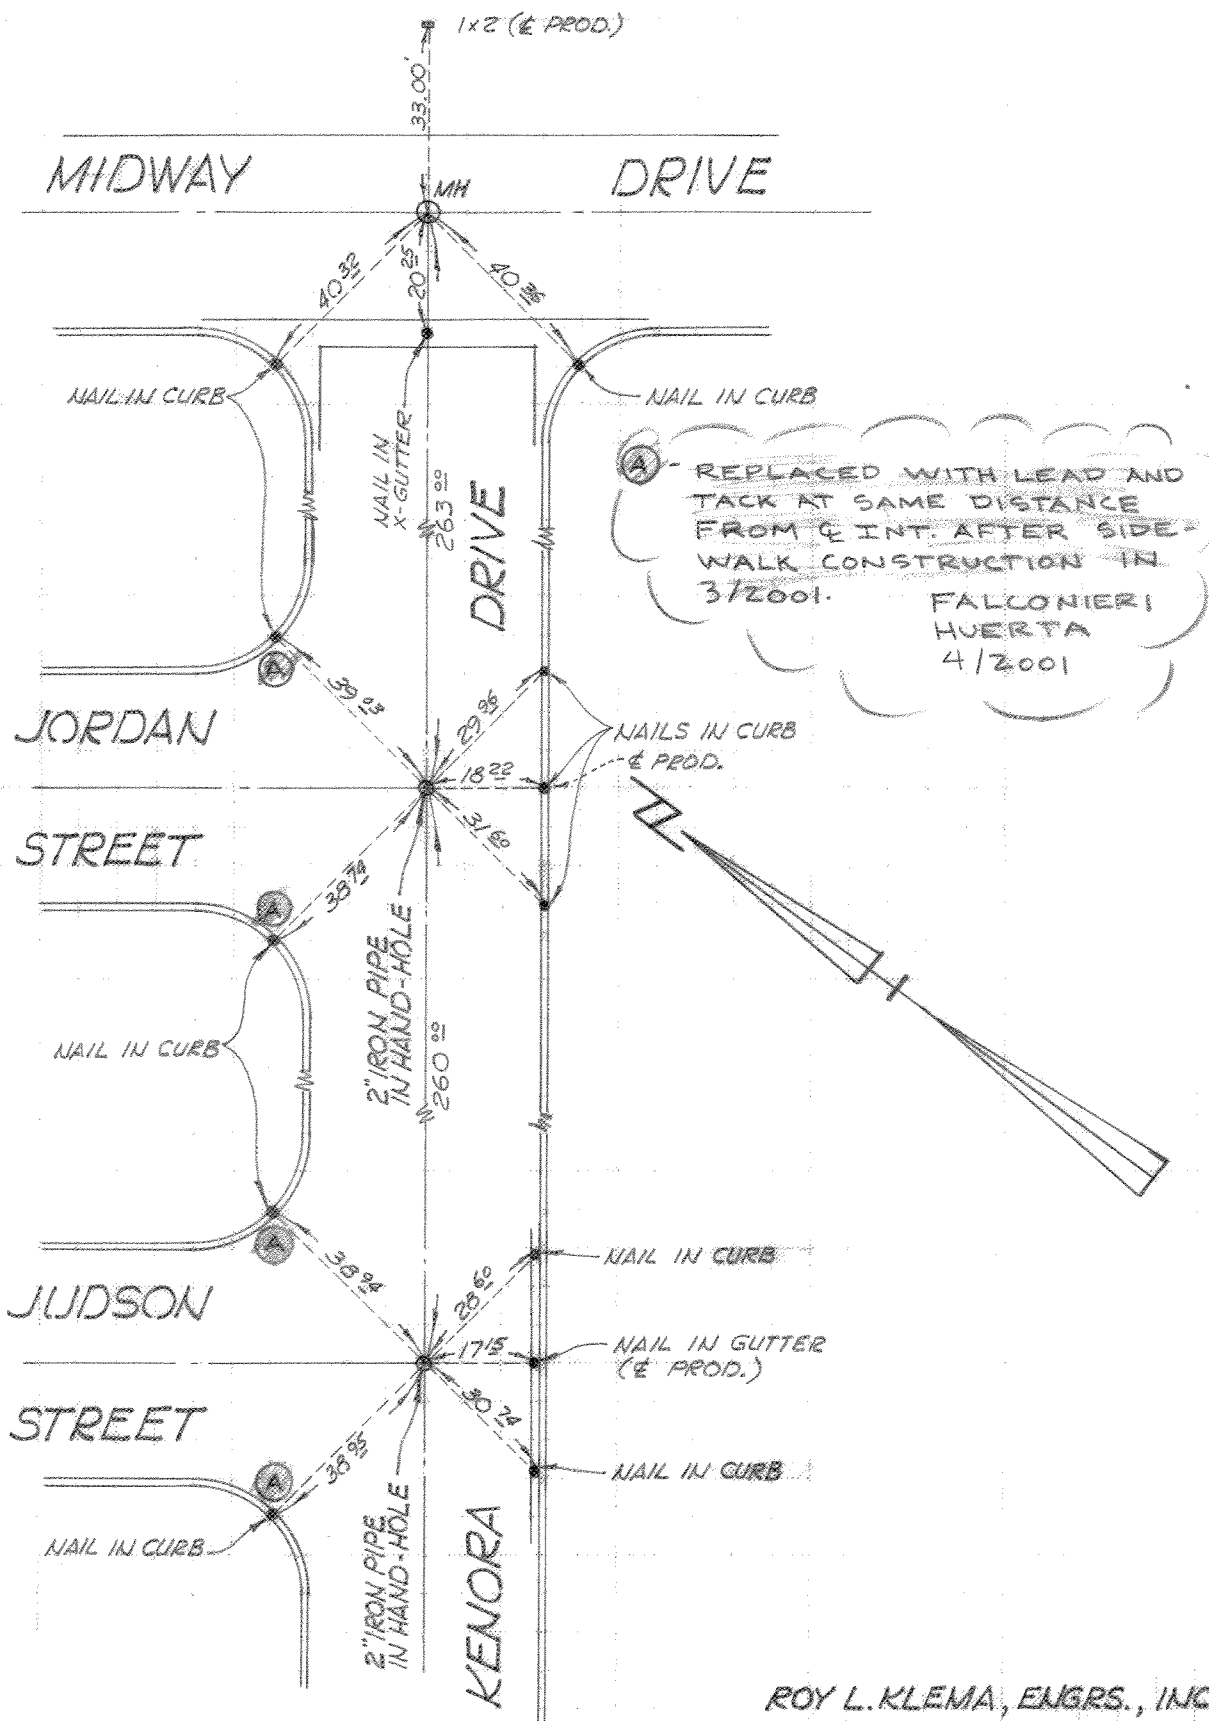 1x2 (℄ PROD.)
33.00'
MIDWAY DRIVE
MH
40 32
20 25
40 36
NAIL IN CURB
NAIL IN CURB
NAIL IN
X-GUTTER
263 00
DRIVE
A - REPLACED WITH LEAD AND
TACK AT SAME DISTANCE
FROM ℄ INT. AFTER SIDE-
WALK CONSTRUCTION IN
3/2001.
FALCONIERI
HUERTA
4/2001
A
39 03
29 96
JORDAN
NAILS IN CURB
℄ PROD.
18 22
STREET
31 60
38 74
A
2" IRON PIPE
IN HAND-HOLE
260 00
NAIL IN CURB
N
A
38 94
28 60
NAIL IN CURB
JUDSON
17 15
NAIL IN GUTTER
(℄ PROD.)
STREET
30 74
38 95
NAIL IN CURB
A
NAIL IN CURB
2" IRON PIPE
IN HAND-HOLE
KENORA
ROY L. KLEMA, ENGRS., INC